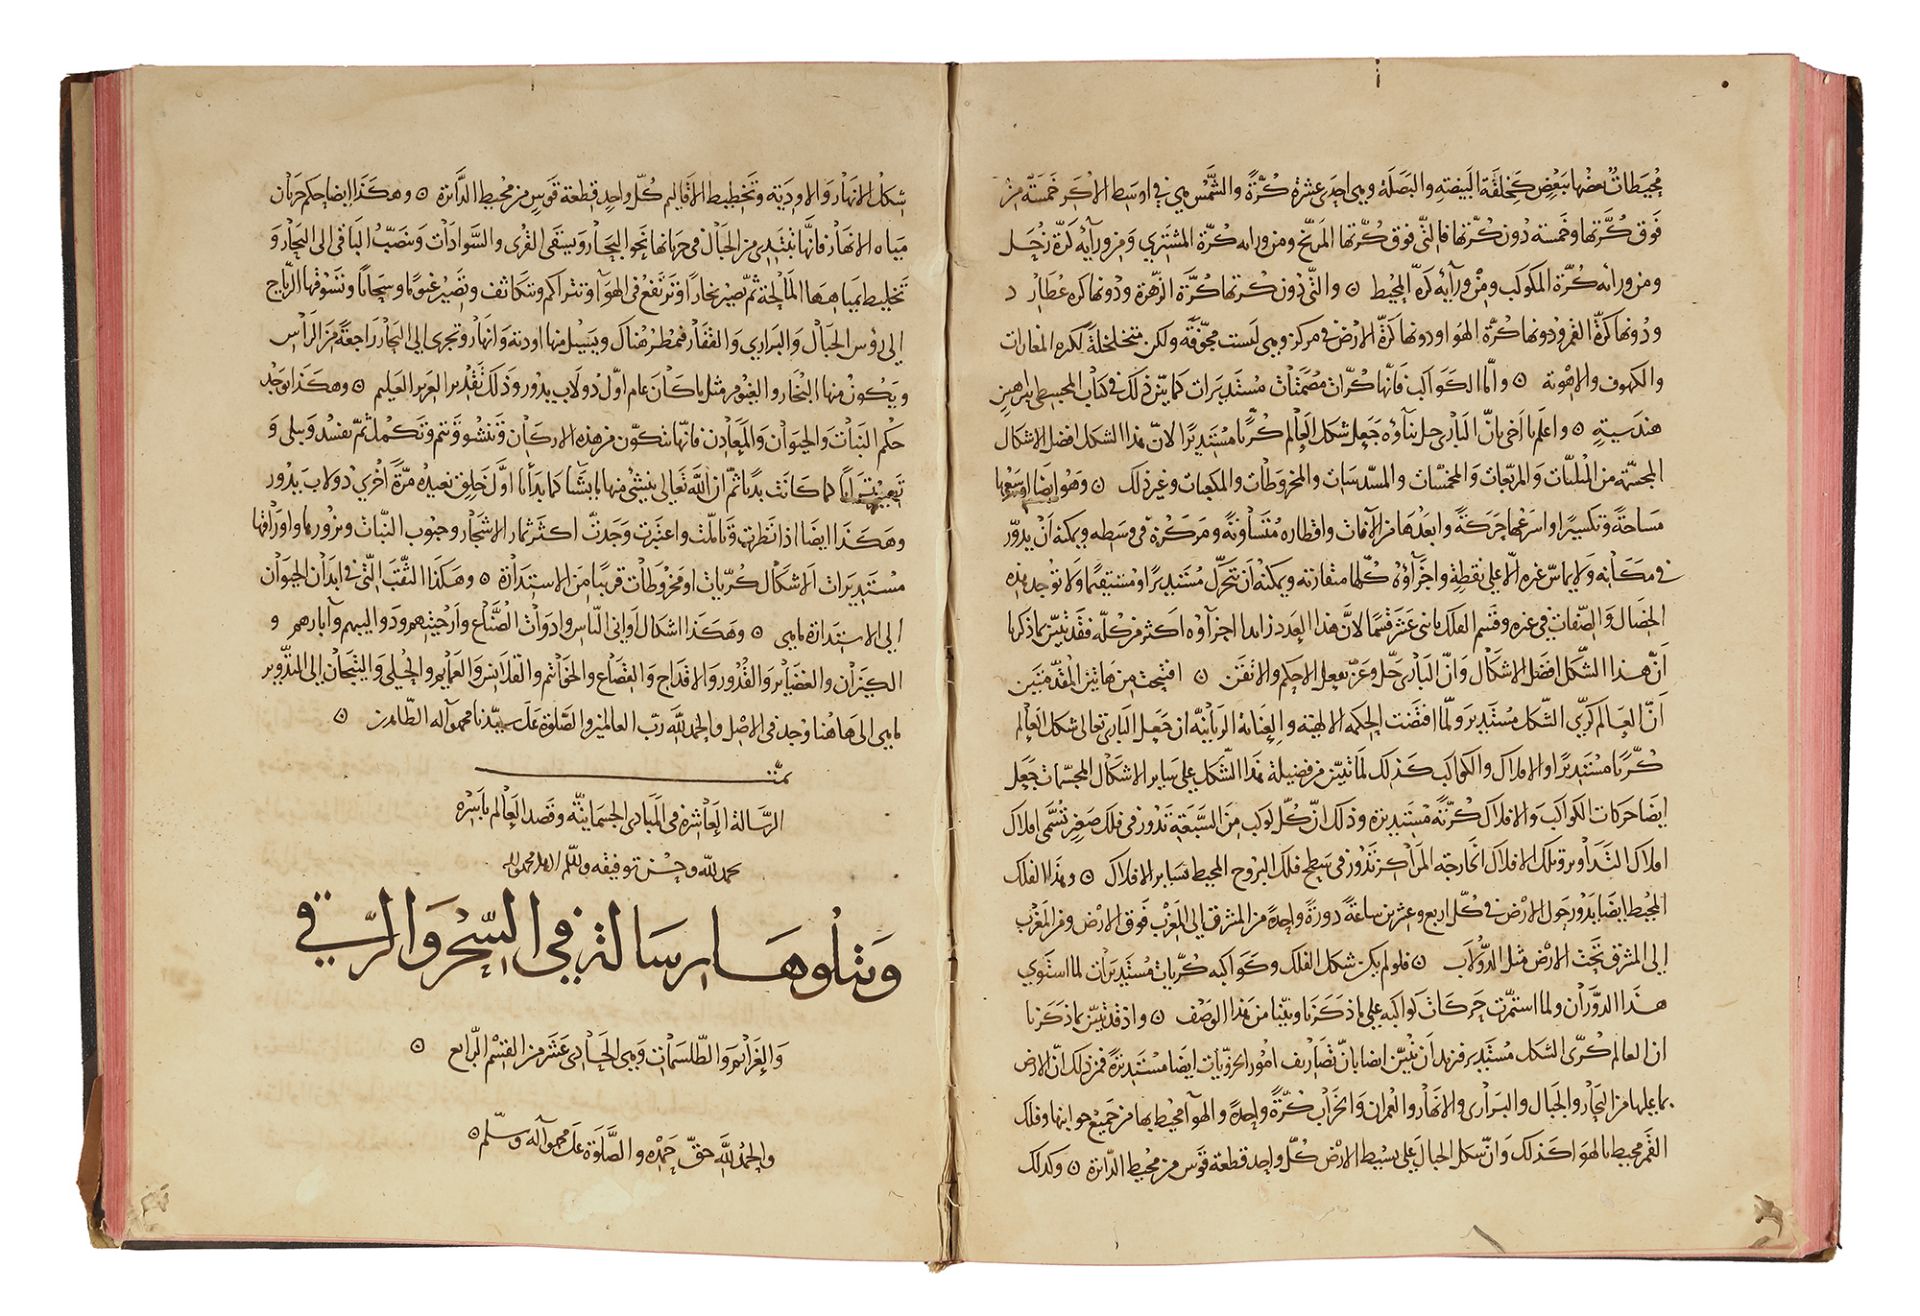 محيطات بعضها ببعض كخلقة البيضة والبصلة وهى احدى عشرة كرّة والشّمس هى فى اوسط الاكر خمسة من
فوق كرّتها وخمسة دون كرّتها فالتى فوق كرّتها المريخ ومن ورائه كرّة المشترى ومن ورآئه كرّة زحل
ومن ورائه كرّة الكواكب ومن ورآئه كرّة المحيط ٥ والتّى دون كرتها كرّة الزهرة ودونها كره عطارد
ودونها كرّة القمر ودونها كرّة الهوا ودونها كرّة الارض فى مركز وهى ليست مجوّفة ولكن متخلخلة لكثره المغارات
والكهوف والاهوية ٥ وامّا الكواكب فانّها كرّات مصمتات مستديرات كما بيّن ذلك فى كتاب المجسطى ببراهين
هندسية ٥ واعلم يا اخى بانّ البارى جل ثناؤه جعل شكل العالم كرّيا مستديرًا لانّ هذا الشكل افضل الاشكال
المجسّمة من المثلثات والمربّعات والمخمّسات والمسدّسات والمخروطات والمكعبات وغير ذلك ٥ وهو ايضا اوسعها
مساحةً وتكسيرًا واسرعها حركةً وابعدها من الآفات واقطاره متساوية ومركزه فى وسطه ويمكنه أن يدوّر
فى مكانه ولا يماسّ غيره الّا على نقطةٍ واجزآؤه كلّها متقاربة ويمكنه أن يتحرّك مستديرًا ومستقيمًا ولا توجد هذه
الخصال والصّفات فى غيره وقسم الفلك باثنى عشر قسمًا لانّ هذا العدد زايدا اجزآؤه اكثر من كلّه فقد تبيّن بما ذكرنا
أنّ هذا الشكل افضل الاشكال وانّ البارى جلّ وعزّ يفعل الاحكم والاتقن ٥ افنتجت من هاتين المقدّمتين
انّ العالم كرّى الشكل مستدير ولمّا اقتضت الحكمه الالهيّة والعناية الربانيّه ان جعل البارى تعالى شكل العالم
كرّيا مستديرًا والافلاك والكواكب كذلك لما تبيّن من فضيلة هذا الشكل على ساير الاشكال المجسّمات جعل
ايضا حركات الكواكب والافلاك كرّيّةً مستديرة وذلك انّ كلّ كوكب من السّبعة يدور فى فلك صغير تسمّى افلاك
افلاك التّداوير وتلك الافلاك الخارجة المراكز تدور فى سطح فلك البروج المحيط بساير الافلاك ٥ وهذا الفلك
المحيط ايضا يدور حول الارض فى كلّ اربع وعشرين ساعةً دورةً واحدةً من المشرق الى المغرب فوق الارض ومن المغرب
إلى المشرق تحت الارض مثل الدّولاب ٥ فلو لم يكن شكل الفلك وكواكبه كرّيات مستديرات لما استوى
هذا الدوران ولما استمرّت حركات كواكبه على ما ذكرنا وبيّنا من هذا الوصف ٥ واذ قد تبيّن بما ذكرنا
ان العالم كرّى الشكل مستدير فنريد أن نبيّن ايضا بانّ تصاريف امور الجزويّات ايضا مستديرة فمن ذلك انّ الارض
بما عليها من البحار والجبال والبرارى والانهار والعمران والخراب كرّةً واحدةً والهوآ محيط بها من جميع جوانبها وفلك
القمر محيط بالهوا كذلك وانّ شكل الجبال على بسيط الارض كلّ واحد قطعة قوس من محيط الدّائرة ٥ وكذلك
شكل الانهار والاودية وتخطيط الاقاليم كلّ واحدٍ قطعة قوس من محيط الدّائرة ٥ وهكذا ايضا حكم جريان
مياه الانهار فانّها تبتدئ من الجبال فى جريانها نحو البحار ويسقى القرى والسّوادات وينصبّ الباقى الى البحار و
تختلط بمياهها المالحة ثمّ تصير بخارًا وترتفع فى الهوآ وتتراكم وتتكاثف وتصير غيومًا وسحابًا وتسوقها الرّياح
إلى رؤس الجبال والبرارى والقفار فتمطر هناك ويسيل منها اودية وانهار وتجرى إلى البحار راجعةً من الرّأس
ويكون منها البخار والغيوم مثل ما كان عام اوّل دولاب يدور وذلك تقدير العزيز العليم ٥ وهكذا يوجد
حكم النّبات والحيوان والمعادن فانّها تتكوّن من هذه الاركان وتنشو وتتم وتكمل ثمّ تفسد وتبلى و
تصير ترابًا كما كانت بديًا ثمّ انّ الله تعالى ينشئ منها ما يشآ كما بدأنا اوّل خلق نعيده مرّة اخرى دولاب يدور
وهكذا ايضا اذا نظرت وتاملت واعتبرت وجدت اكثر ثمار الاشجار وحبوب النّبات وبزورها واوراقها
مستديرات الاشكال كريّات او مخروطات قريبا من الاستدارة ٥ وهكذا الثقب التّى فى ابدان الحيوان
الى الاستدارة ماهى ٥ وهكذا اشكال اوانى النّاس وادوات الصّنّاع وارحيتهم ودواليبهم وآبارهم و
الكيزان والغضائر والقدور والاقداح والقصاع والخواتم والقلانس والعمايم والحلى والتيجان إلى التدوير
ماهى الى هاهنا وجد فى الاصل والحمد لله ربّ العالمين والصّلوة على سيّدنا محمد وآله الطاهرين ٥
تمّت
الرّسالة العاشرة فى المبادى الجسمانيّة وقصد العالم باسره
بحمد لله وحسن توفيقه
وتتلوها رسالة فى السّحر والرّقى
والعزائم والطّلسمات وهى الحادى عشر من القسم الرّابع ٥
والحمد لله حقّ حمده والصّلوة على محمد وآله وسلّم ٥